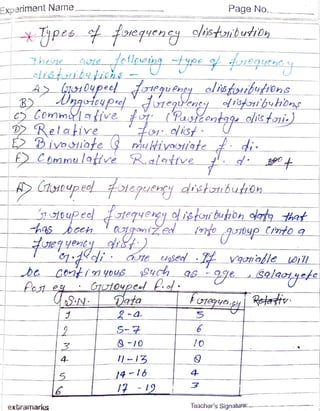 Experiment Name
Page No.
* Types of frequency distribution
There are following type of frequency
distributions -
A> Grouped frequency distributions
B> Ungrouped frequency distributions
C> Commulative f. (Percentage distri.)
D> Relative fr. dist.
E> Bivariate & multivariate f. di.
F> Commulative Relative f. d.
A> Grouped frequency distribution
Grouped frequency distribution data that
has been organized into group (into a
frequency dist.)
gr. f. di. are used. If variable will
be continuous such as - age, salary etc
For eg. Grouped f.d.
S.N. Data Frequency Relativ
1 2-4 5
2 5-7 6
3 8-10 10
4 11-13 8
5 14-16 4
6 17-19 3
extramarks
Teacher's Signature